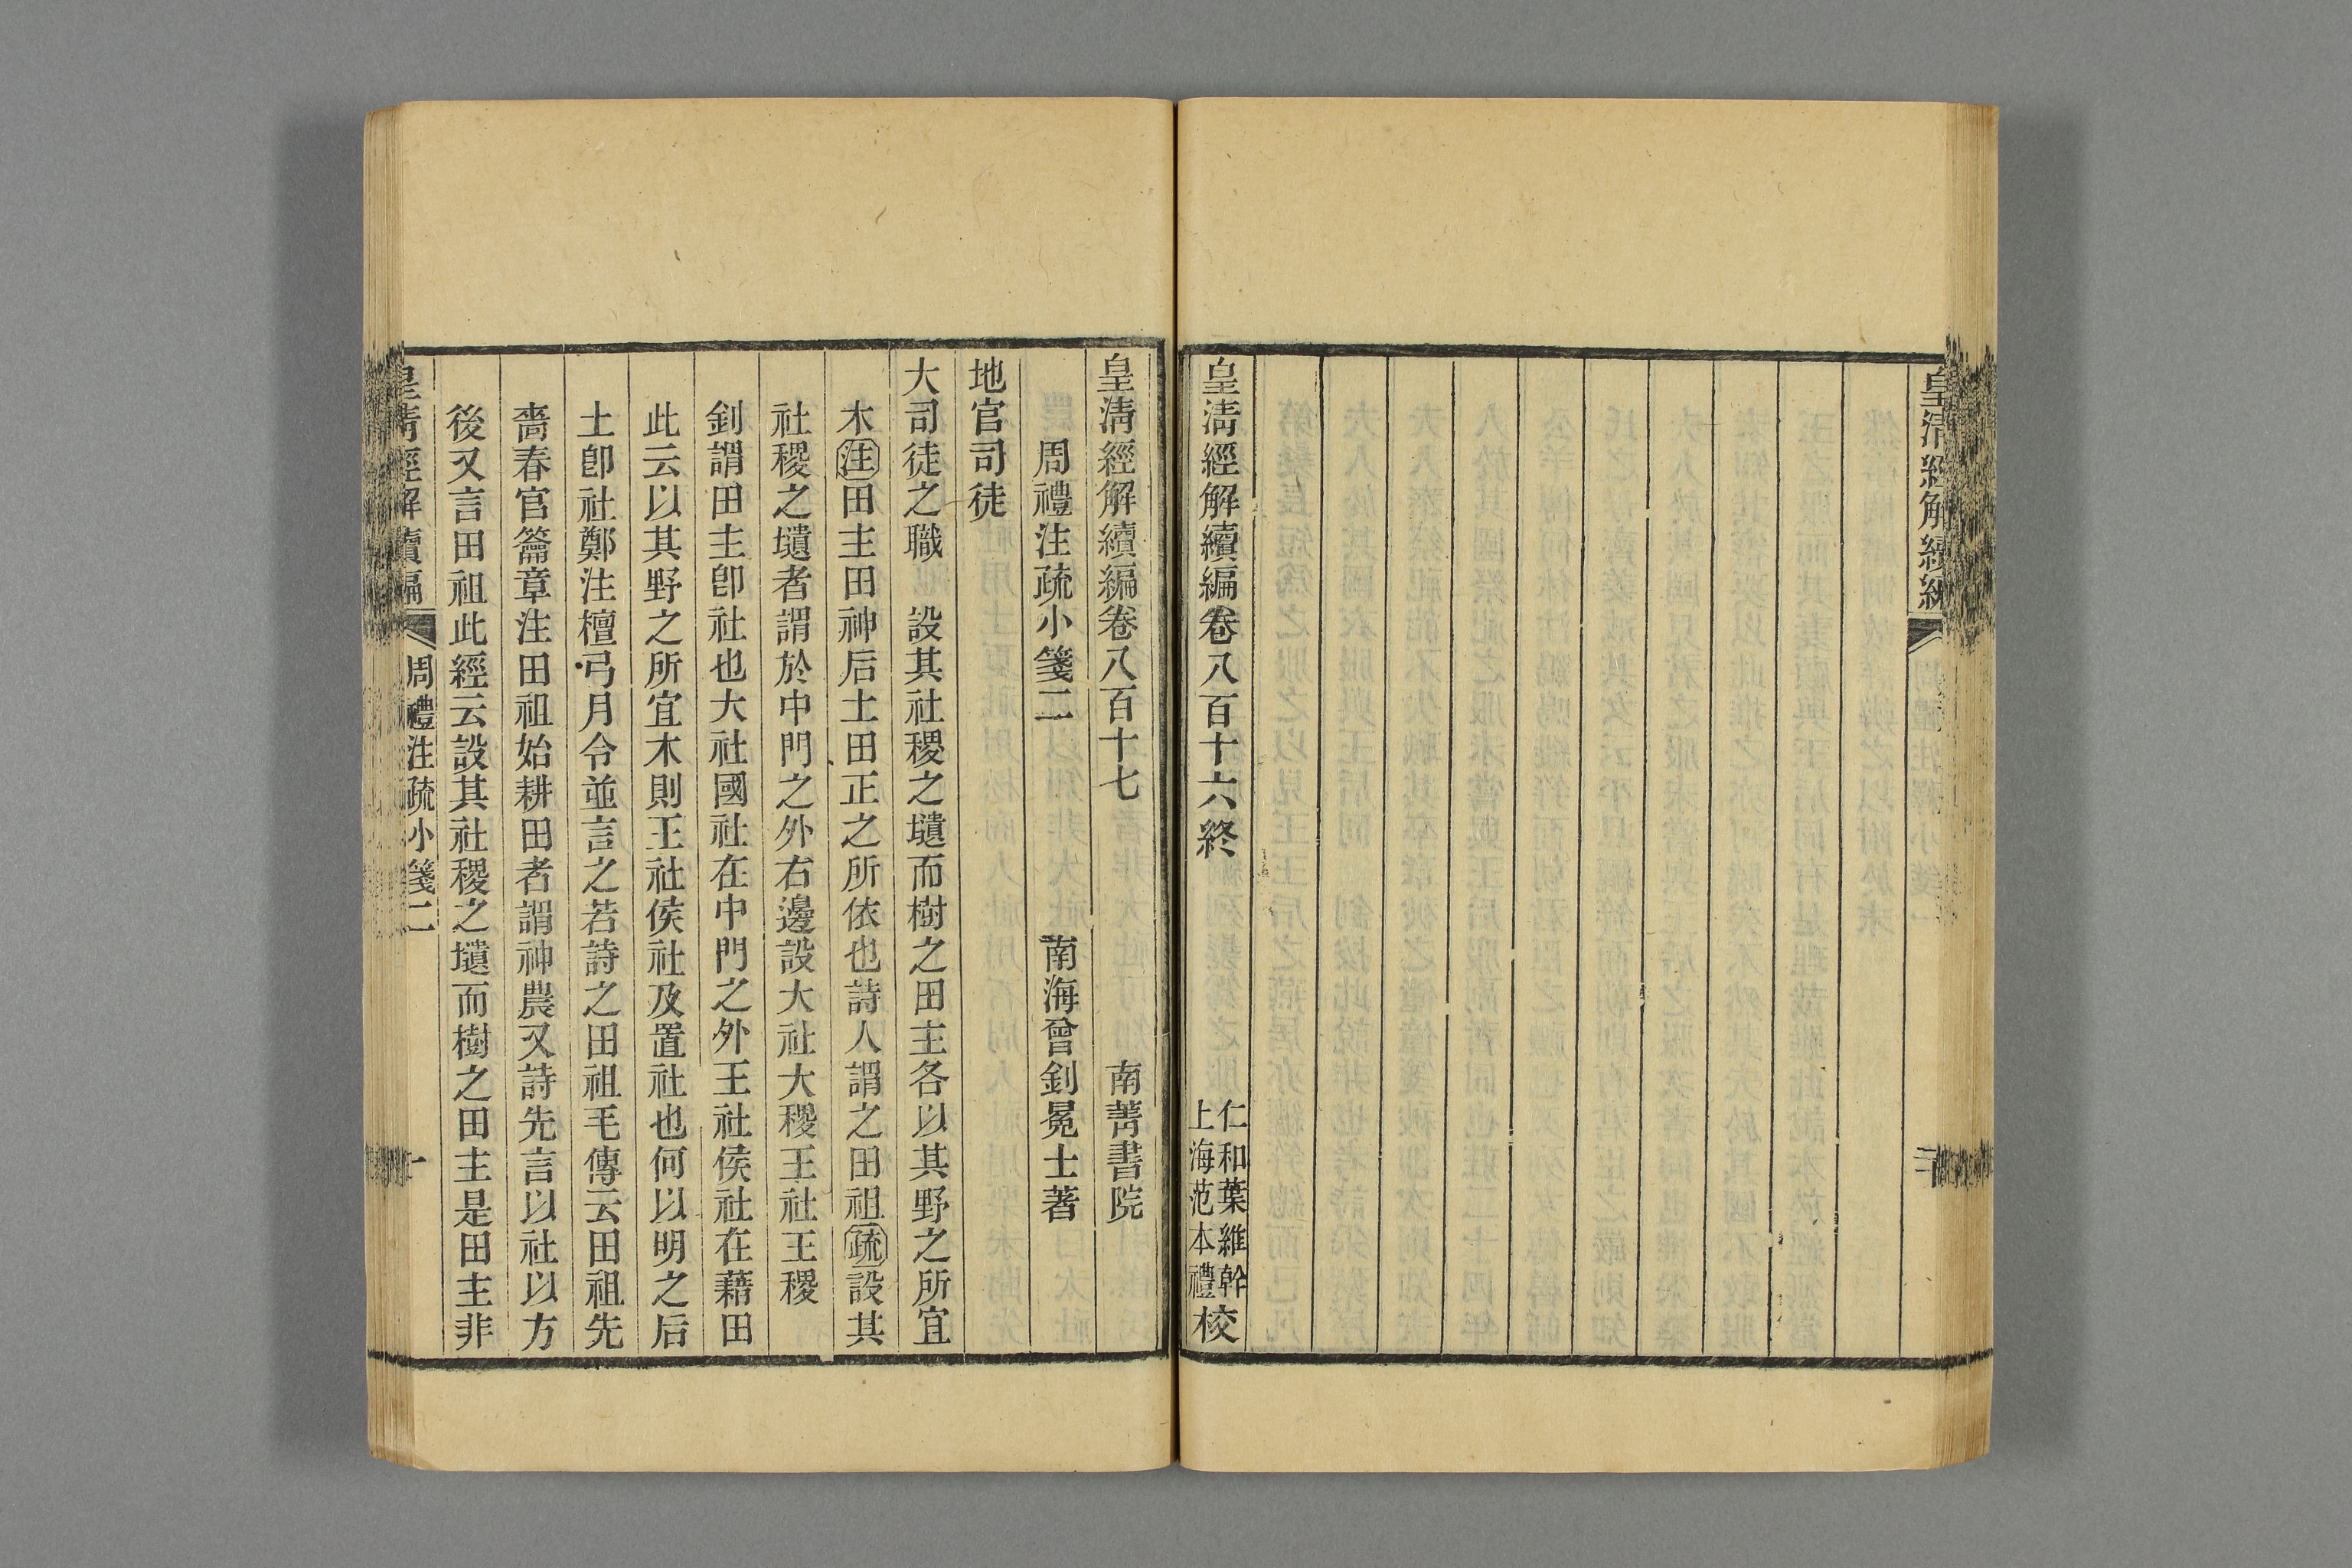 皇淸經解續編
皇淸經解續編卷八百十六終
仁和葉維幹
上海范本禮
校
皇淸經解續編卷八百十七
南菁書院
周禮注疏小箋二
南海曾釗冕士著
地官司徒
大司徒之職 設其社稷之壝而樹之田主各以其野之所宜
木注田主田神后土田正之所依也詩人謂之田祖疏設其
社稷之壝者謂於中門之外右邊設大社大稷王社王稷
釗謂田主卽社也大社國社在中門之外王社侯社在藉田
此云以其野之所宜木則王社侯社及置社也何以明之后
土卽社鄭注檀弓月令並言之若詩之田祖毛傳云田祖先
嗇春官籥章注田祖始耕田者謂神農又詩先言以社以方
後又言田祖此經云設其社稷之壝而樹之田主是田主非
皇淸經解續編
周禮注疏小箋二
一